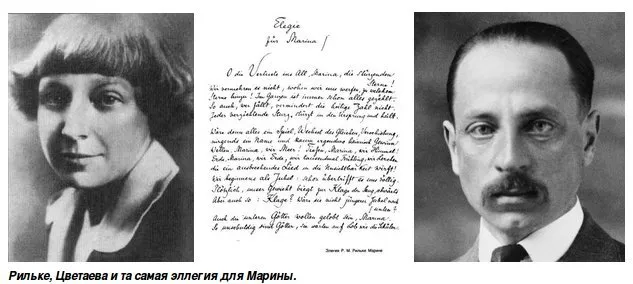 Elegie
für Marina
O die Verluste ins All, Marina, die stürzenden
Sterne!
Wir vermehren es nicht, wohin wir uns werfen, zu welchem
Sterne hinzu! Im Ganzen ist immer schon alles gezählt.
So auch, wer fällt, vermindert die heilige Zahl nicht.
Jeder verzichtende Sturz, stürzt in den Ursprung und heilt.
Wäre denn alles ein Spiel, Wechsel des Gleichen, Verschiebung,
nirgends ein Name und kaum irgendwo heimisch Gewinn?
Wellen, Marina, wir Meer! Tiefen, Marina, wir Himmel.
Erde, Marina, wir Erde, wir tausendmal Frühling, wie Lerchen
die ein ausbrechendes Lied in die Unsichtbarkeit wirft!
Wir beginnens als Jubel: schon übertrifft es uns völlig
Plötzlich, unser Gewicht biegt zur Klage den Sang abwärts
Aber auch so: Klage? Wäre sie nicht jüngerer Jubel nach
unten?
Auch die unteren Götter wollen gelobt sein, Marina.
So unschuldig sind Götter, sie warten auf Lob wie die Schüler.
Элегия Р. М. Рильке Марине
Рильке, Цветаева и та самая эллегия для Марины.